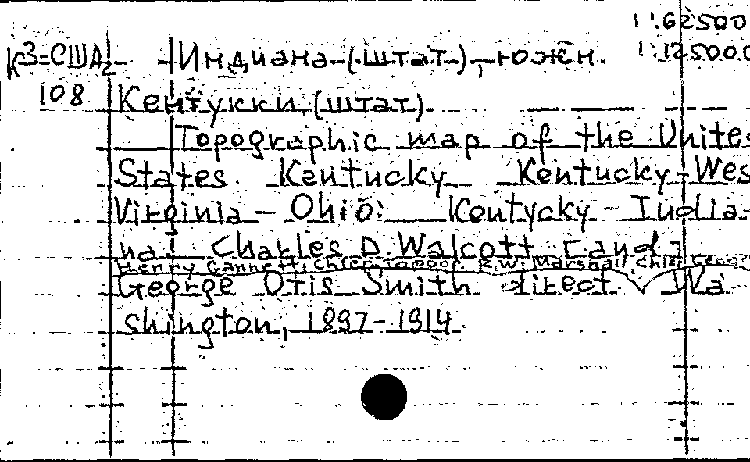 1:62500
К3-США Индиана (штат), южн. 1:125000
108 Кентукки (штат).
Topographic map of the Unites
States Kentucky Kentucky-Wes
Virginia - Ohio: Kentycky - India-
na. Charles D Walcott and
Henry Gannett, Chief Topogr. R.W. Marshall, chief Geog
George Otis Smith direct. Wa
shington, 1897-1914